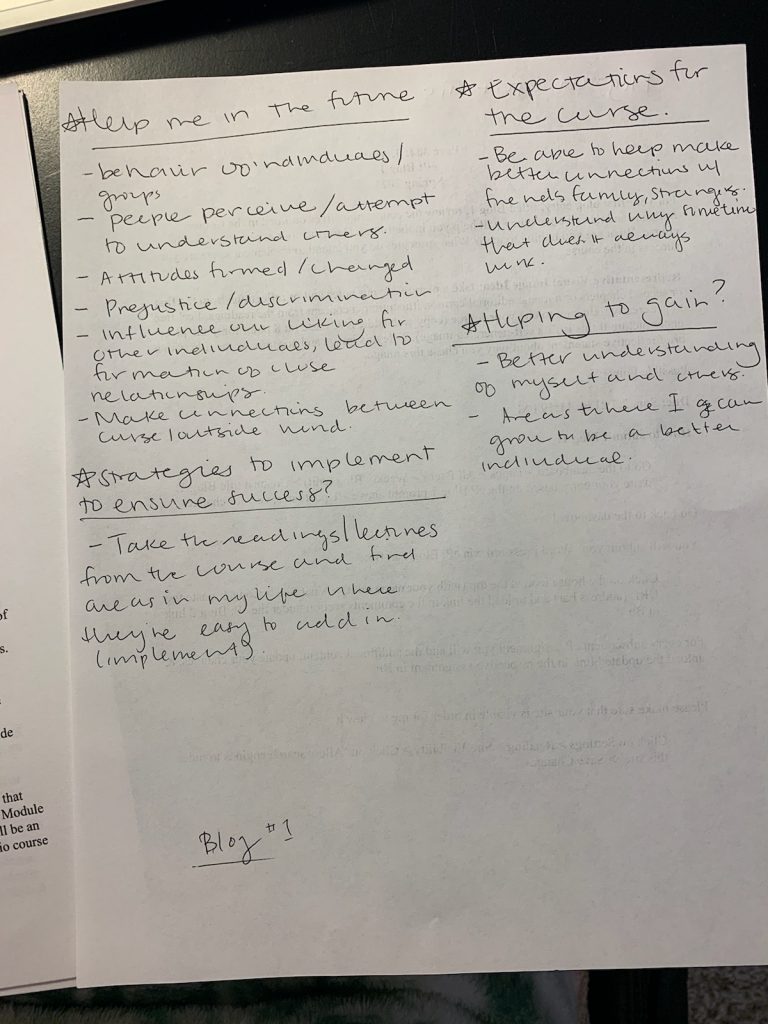 ☆Help me in the future
- behavior of individuals/
groups
- people perceive/attempt
to understand others.
- Attitudes formed/changed
- Prejustice/discrimination
- Influence our liking for
other individuals, lead to
formation of close
relationships.
- Make connections between
curse/outside
☆Strategies to implement
to ensure success?
- Take the readings/lectures
from the course and find
areas in my life where
they're easy to add in.
(implement).
☆ Expectations for
the curse.
- Be able to help make
better connections w/
friends family, strangers.
- Understand why sometime
that doesn't always
work.
☆Hoping to gain?
- Better understanding
of myself and others.
- Areas where I can
grow to be a better
individual.
Blog #1
of
s.
de
that
Module
ll be an
io course